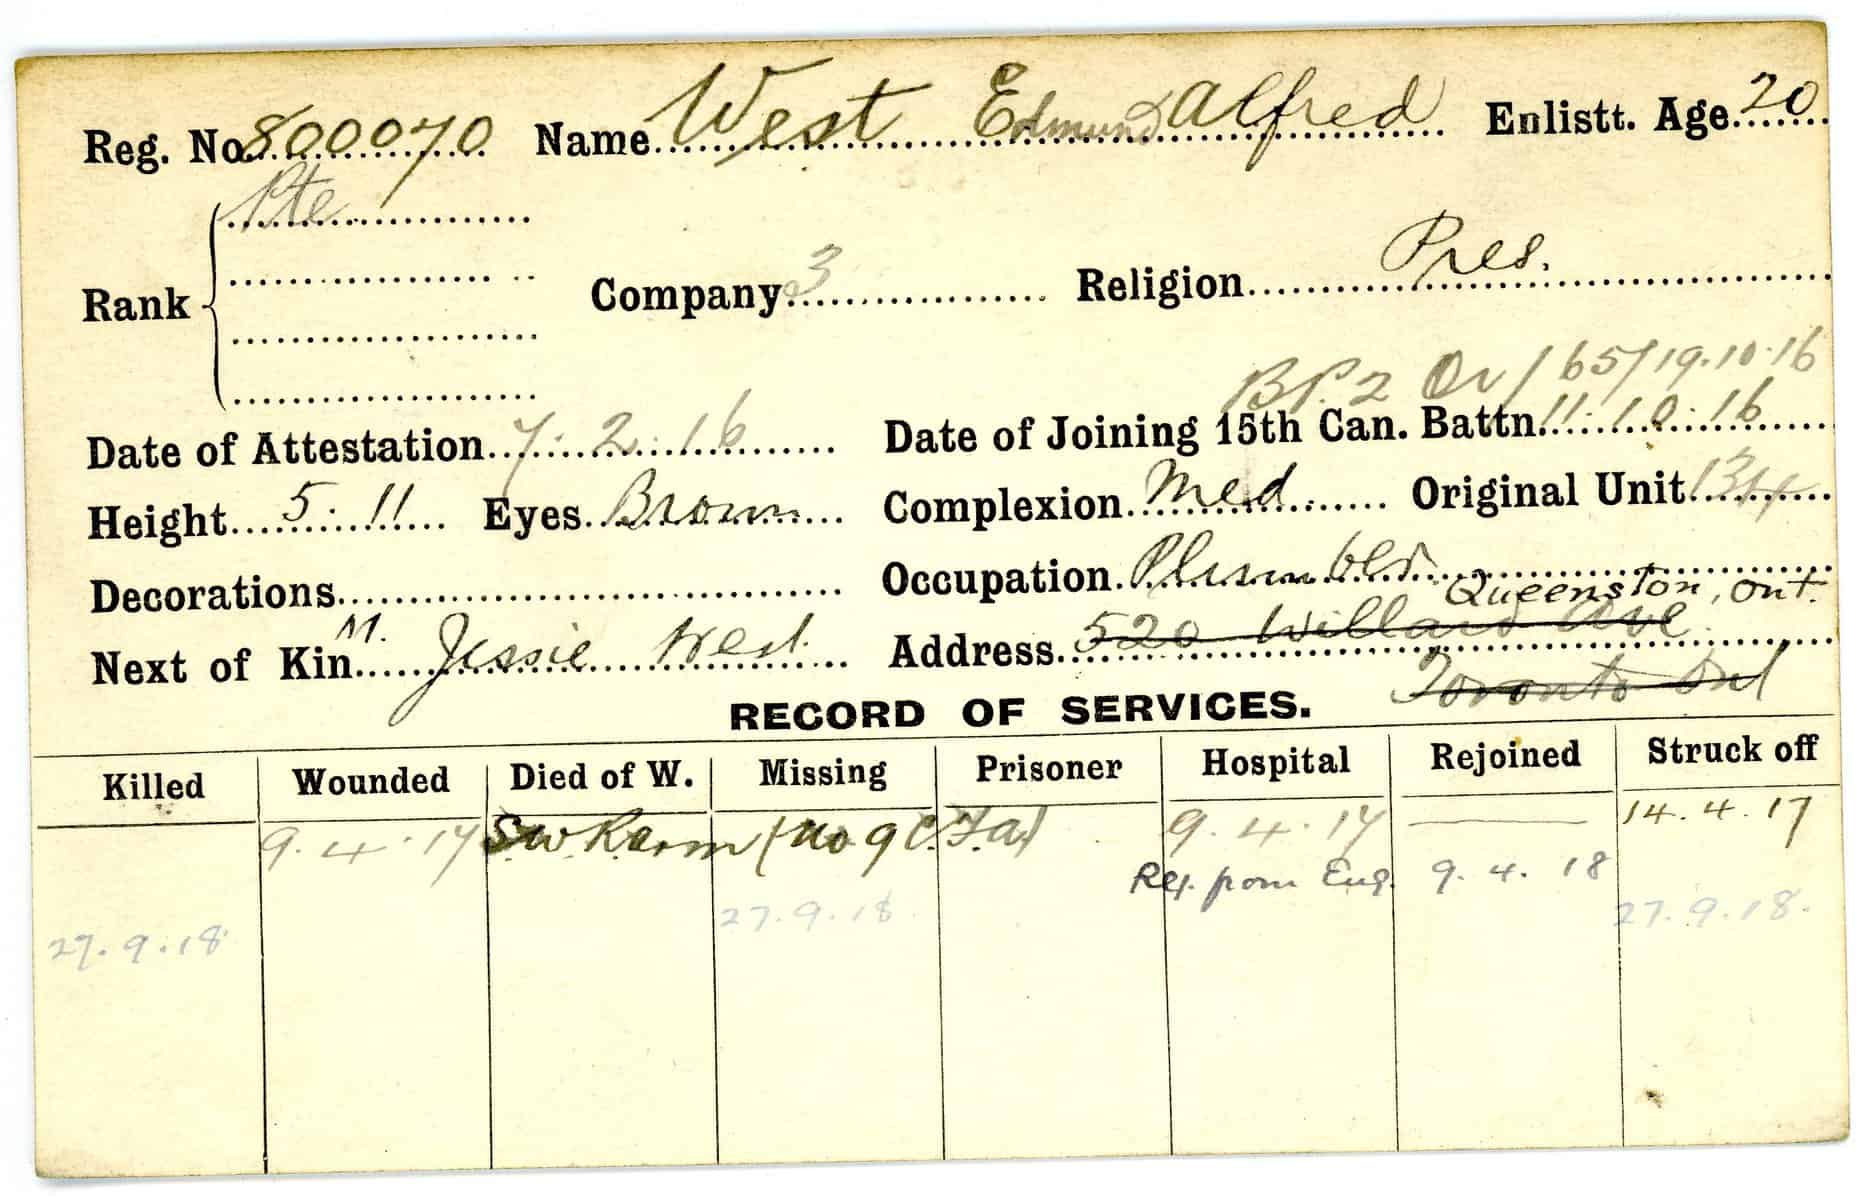 Reg. No. 800070 Name West Edmund Alfred Enlistt. Age 20
Pte
Rank Company 3 Religion Pres.
BP.2 Or/165/19.10.16
Date of Attestation 7.2.16 Date of Joining 15th Can. Battn. 11.10.16
Height 5.11 Eyes Brown Complexion Med. Original Unit 134
Decorations Occupation Plumber
Queenston, Ont.
Next of Kin M. Jessie West Address 520 Willard Ave
Toronto Ont
RECORD OF SERVICES.
Killed Wounded Died of W. Missing Prisoner Hospital Rejoined Struck off
9.4.17 S.W.R.arm (No 9 C.F.a) 9.4.17 14.4.17
Rej. from Eng. 9.4.18
27.9.18 27.9.18 27.9.18.